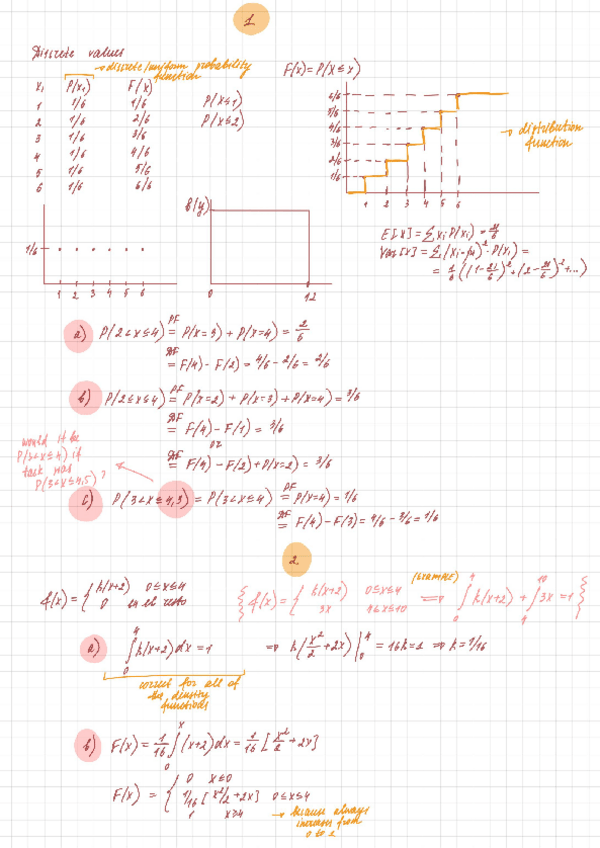 1
Discrete values
→ discrete/uniform probability function
xi P(xi) F(x)
1 1/6 1/6 P(x≤1)
2 1/6 2/6 P(x≤2)
3 1/6 3/6
4 1/6 4/6
5 1/6 5/6
6 1/6 6/6
F(x) = P(X ≤ x)
6/6
5/6
4/6
3/6
2/6
1/6
1 2 3 4 5 6
→ distribution function
1/6
1 2 3 4 5 6
0 12
E[x] = Σ xi P(xi) = 21/6
Var[x] = Σ (xi - μ)² · P(xi) =
= 1/6 ((1 - 21/6)² + (2 - 21/6)² + ...)
a) P(2<x≤4) PF= P(x=3) + P(x=4) = 2/6
DF= F(4) - F(2) = 4/6 - 2/6 = 2/6
b) P(2≤x≤4) PF= P(x=2) + P(x=3) + P(x=4) = 3/6
DF= F(4) - F(1) = 3/6
or
DF= F(4) - F(2) + P(x=2) = 3/6
would it be
P(3<x≤4) if
task was
P(3<x≤4,5)?
c) P(3<x≤4,3) = P(3<x≤4) PF= P(x=4) = 1/6
DF= F(4) - F(3) = 4/6 - 3/6 = 1/6
2
f(x) = { k(x+2) 0≤x≤4
0 en el resto
(EXAMPLE)
{ f(x) = { k(x+2) 0≤x≤4
3x 4≤x≤10 ⇒ ∫₀⁴ k(x+2) + ∫₄¹⁰ 3x = 1 }
a) ∫₀⁴ k(x+2) dx = 1 ⇒ k(x²/2 + 2x) |₀⁴ = 16k = 1 ⇒ k = 1/16
correct for all of
the density
functions
b) F(x) = 1/16 ∫₀ˣ (x+2) dx = 1/16 [x²/2 + 2x]
F(x) = { 0 x≤0
1/16 [x²/2 + 2x] 0≤x≤4
1 x≥4 → because always
increases from
0 to 1